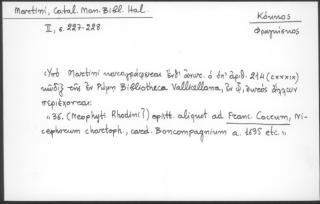 Martini, Catal. Man. Bibl. Ital.
II, σ. 227-228.
Κόκκος
Φραγκίσκος
Ὑπὸ Martini καταγράφεται ἐνθ' ἀνωτ. ὁ ὑπ' ἀριθ. 214 (CXXXIX)
κῶδιξ τῆς ἐν Ρώμῃ Bibliotheca Vallicellana, ἐν ᾧ, ἐκτὸς ἄλλων
περιέχονται:
"36. (Neophyti Rhodini?) epistt. aliquot ad Franc. Coccum, Ni-
cephorum chartoph., card. Boncompagnium a. 1635 etc."